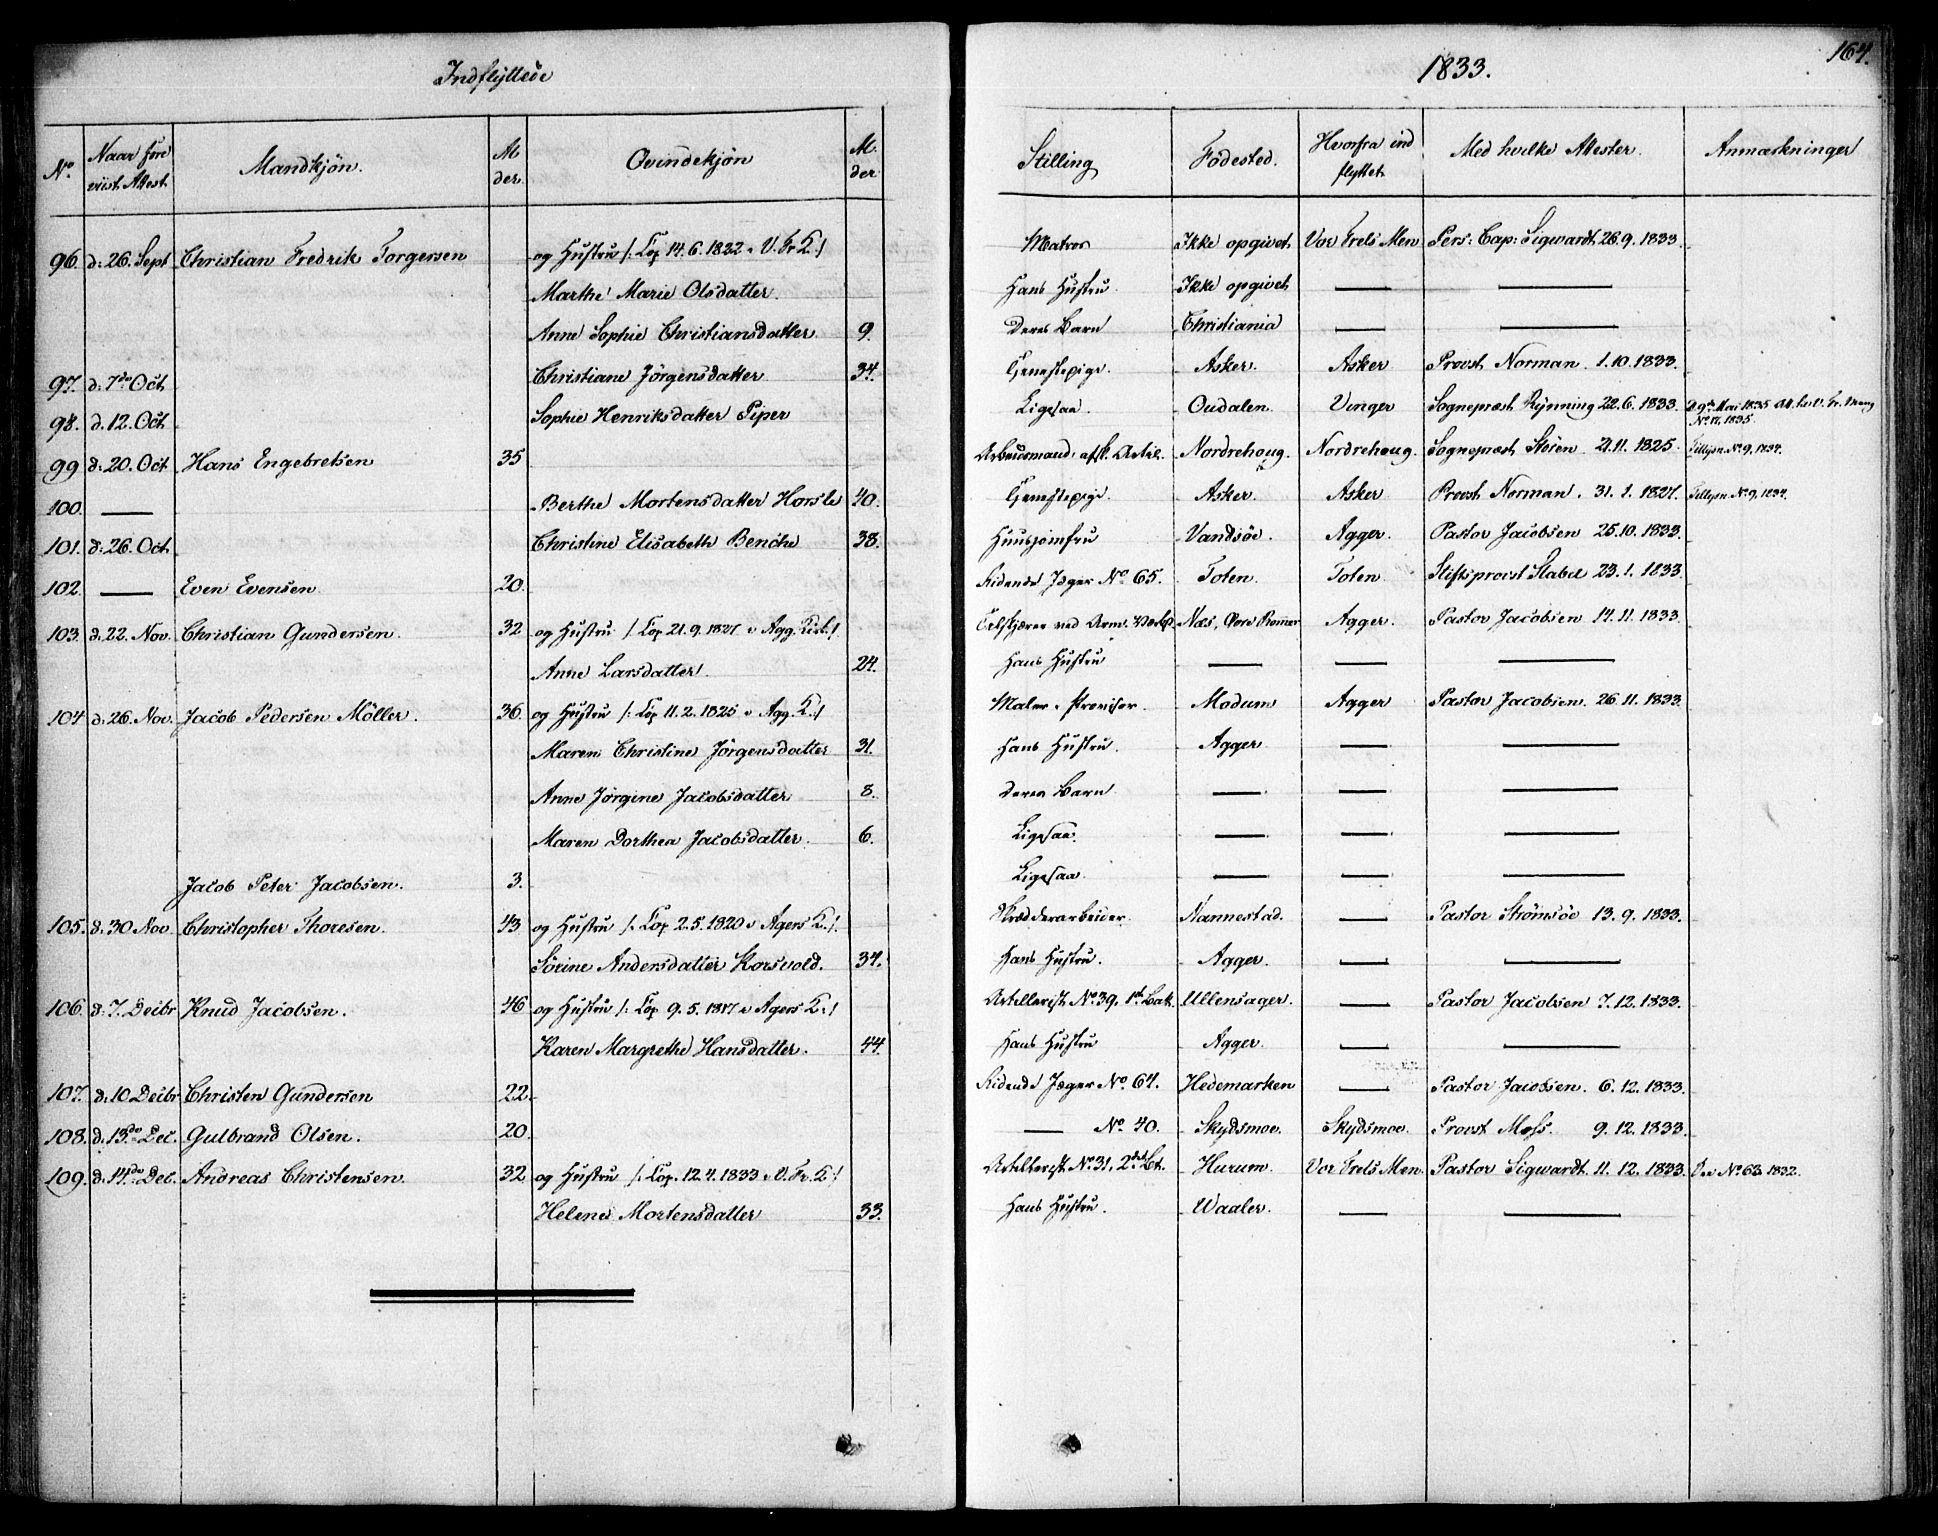 Indflyttede
1833.
164.
No. Naar fore viist Attest. Mandkjön. Al der. Qvindekjön Al der Stilling Födested. Hvorfra ind flyttet. Med hvilke Attester. Anmærkninger
96. d: 26. Sept Christian Fredrik Torgersen og Hustru /: Cop 14.6.1822 i V. Fr. K:/ Matros Ikke opgivet Vor Frels Men Pers: Cap: Sigwardt 26.9.1833.
Marthe Marie Olsdatter. Hans Hustru Ikke opgivet — —
Anne Sophie Christiansdatter. 9. Deres Barn Christiania — —
97. d: 7de Oct Christiane Jörgensdatter 34. Tjenestepige. Asker. Asker Provst Norman. 1.10.1833.
98. d. 12. Oct Sophie Henriksdatter Piper Ligesaa. Oudalen. Vinger Sognepræst Rynning 22.6.1833. No. 17, 1835.
99 d: 20. Oct. Hans Engebretsen 35 Arbeidsmand, afsk. Artil. Nordrehoug. Nordrehoug. Sognepræst Stöien. 21.11.1825. Tillysn. No. 9, 1834.
100. — Berthe Mortensdatter Horsle 40. Tjenestepige. Asker. Asker Provst Norman. 31.1.1827. Tillysn. No. 9, 1834.
101. d: 26. Oct. Christine Elisabeth Benche 38. Huusjomfru Vandsöe. Agger. Pastor Jacobsen 25.10.1833.
102. — Even Evensen 20. Ridende Jæger No. 65. Toten. Toten. Stiftsprovst Stabel 23.1.1833.
103. d: 22. Nov. Christian Gundersen. 32 og Hustru /: Cop 21.9.1827 i Agg. Kirk:/ Næs, Övre Romer Agger. Pastor Jacobsen 14.11.1833.
Anne Larsdatter. 24. Hans Hustru — — —
104 d: 26. Nov. Jacob Pedersen Möller. 36. og Hustru /: Cop 11.2.1825 i Agg. K:/ Maler Modum Agger Pastor Jacobsen. 26.11.1833.
Maren Christine Jörgensdatter 31. Hans Hustru. Agger. — —
Anne Jörgine Jacobsdatter 8. Deres Barn — — —
Maren Dorthea Jacobsdatter. 6. Ligesaa. — — —
Jacob Peter Jacobsen. 3. Ligesaa — — —
105. d: 30 Nov Christopher Thoresen. 43 og Hustru /: Cop 2.5.1820 i Agers K:/. Skrædderarbeider. Nannestad. — Pastor Strömsöe 13.9.1833.
Sörine Andersdatter Korsvold. 34. Hans Hustru. Agger. — —
106. d: 7. Decbr Knud Jacobsen. 46 og Hustru /: Cop 9.5.1817 i Agers K:/ Artillerist No. 39, 1st Bat. Ullensager. — Pastor Jacobsen 7.12.1833.
Karen Margrethe Hansdatter. 44. Hans Hustru Agger. — —
107. d: 10 Decbr Christen Gundersen 22. Ridende Jæger No. 64. Hedemarken — Pastor Jacobsen. 6.12.1833.
108. d. 13de Dec. Gulbrand Olsen. 20. — No. 40. Skydsmoe. Skydsmoe. Provst Moss. 9.12.1833.
109. d. 14de Dec. Andreas Christensen. 32 og Hustru /: Cop. 12.4.1833 i V. Fr. K:/ Artillerist No. 31, 2det Bt. Hurum. Vor Frels Men. Pastor Sigwardt. 11.12.1833. See No. 63. 1832.
Helene Mortensdatter 33. Hans Hustru. Waaler. — —